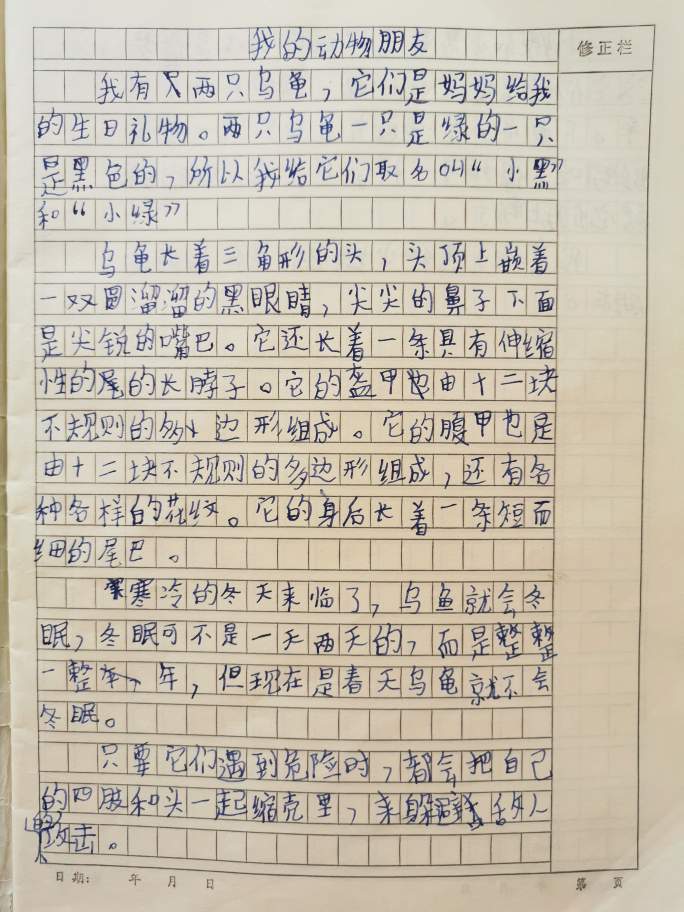 我的动物朋友
修正栏
我有两只乌龟，它们是妈妈给我
的生日礼物。两只乌龟一只是绿的一只
是黑色的，所以我给它们取名叫“小黑”
和“小绿”
乌龟长着三角形的头，头顶上嵌着
一双圆溜溜的黑眼睛，尖尖的鼻子下面
是尖锐的嘴巴。它还长着一条具有伸缩
性的尾的长脖子。它的盔甲也由十二块
不规则的多边形组成。它的腹甲也是
由十二块不规则的多边形组成，还有各
种各样的花纹。它的身后长着一条短而
细的尾巴。
寒冷的冬天来临了，乌鱼就会冬
眠，冬眠可不是一天两天的，而是整整
一整年，但现在是春天乌龟就不会
冬眠。
只要它们遇到危险时，都会把自己
的四肢和头一起缩壳里，来躲避敌人
的攻击。
日期： 年 月 日
第 页